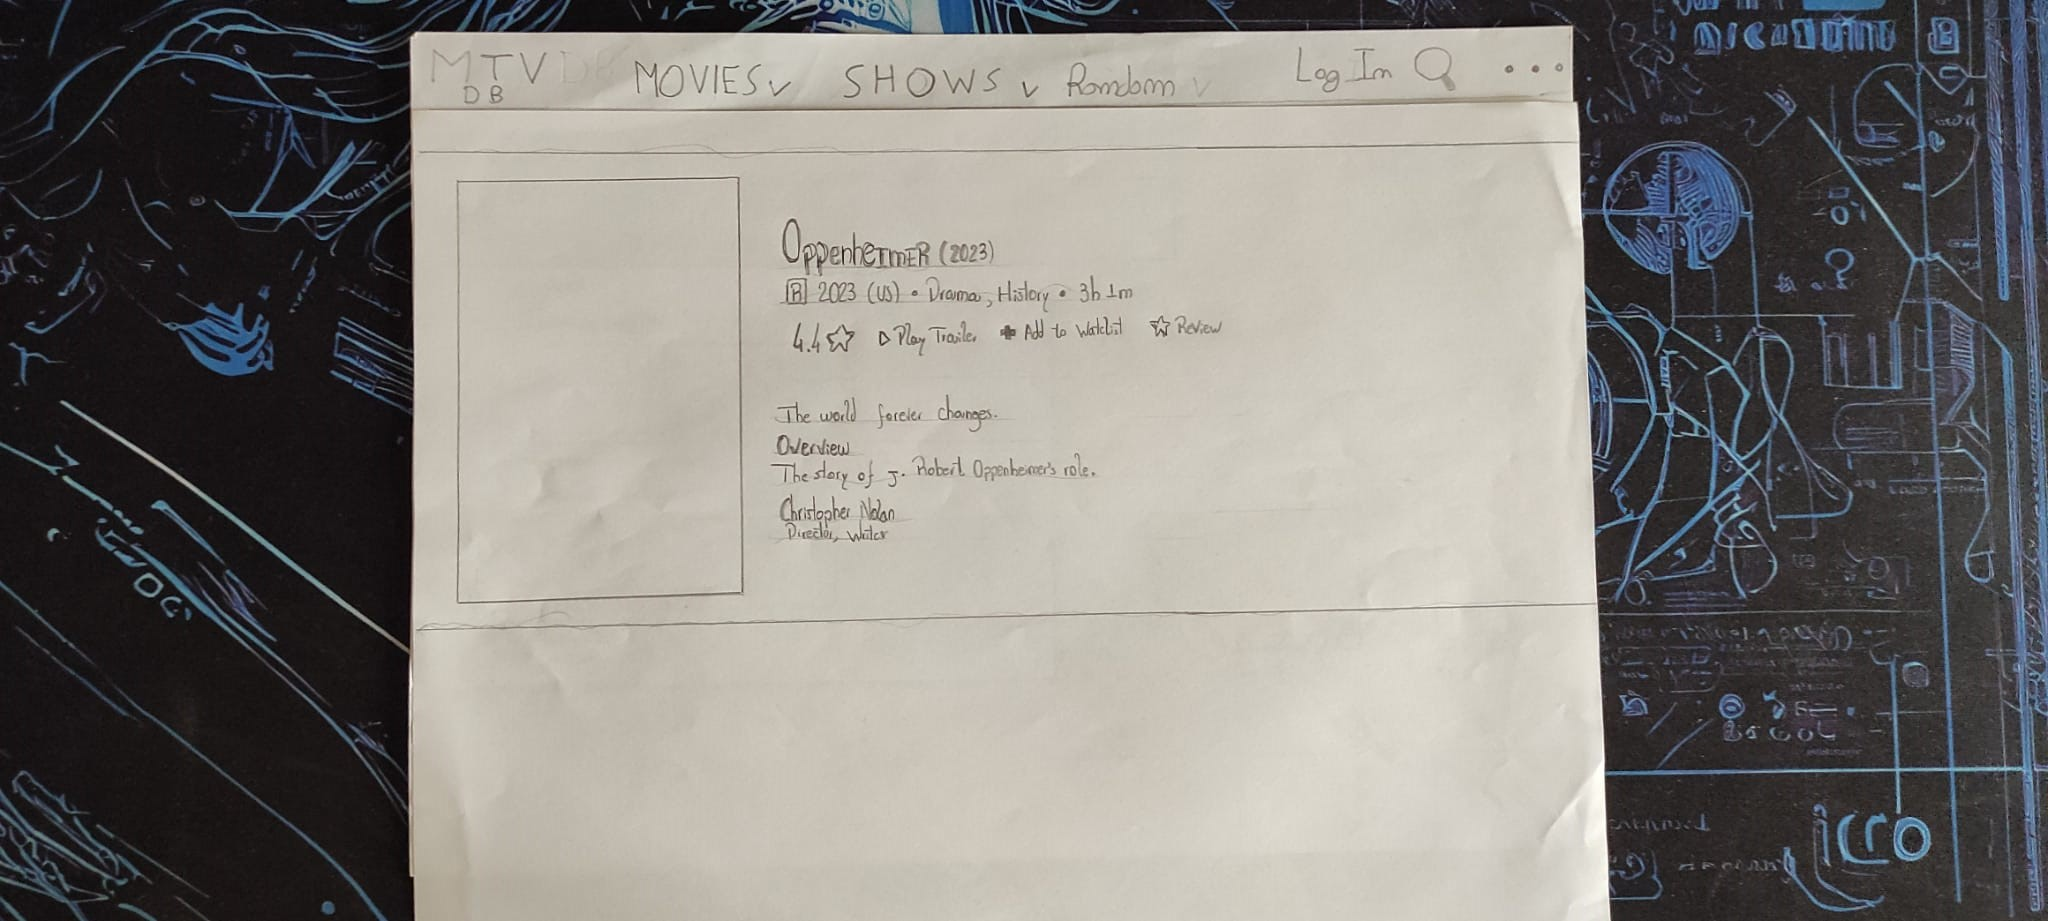 MTV MOVIES SHOWS Random Log In
DB
OppenheimER (2023)
R 2023 (US) • Drama, History • 3h 1m
4.4 Play Trailer Add to Watclist Review
The world forever changes.
Overview
The story of J. Robert Oppenheimer's role.
Christopher Nolan
Director, Writer